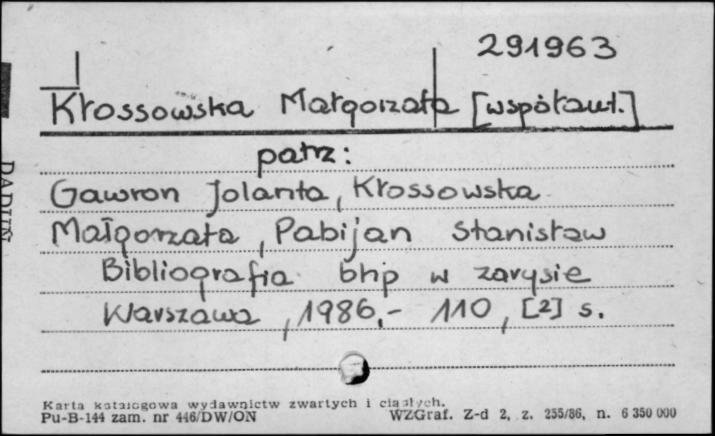 291963
Kłossowska Małgorzata [współaut.]
patrz:
Gawron Jolanta, Kłossowska
Małgorzata, Pabijan Stanisław
Bibliografia bhp w zarysie
Warszawa, 1986.- 110, [2] s.
Karta katalogowa wydawnictw zwartych i ciągłych.
Pu-B-144 zam. nr 446/DW/ON WZGraf. Z-d 2, z. 255/86, n. 6 350 000